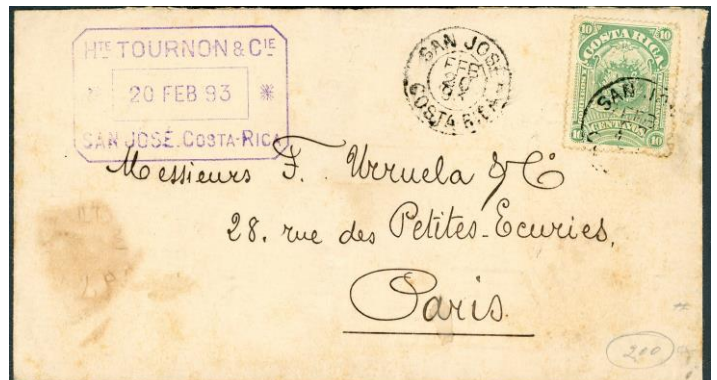 HTE TOURNON & CIE
20 FEB 93
SAN JOSÉ. COSTA-RICA
SAN JOSE
FEB
COSTA RICA
10 10
COSTA RICA
SAN JOSE
10 CENTAVOS 10
Messieurs F. Urruela & Co
28. rue des Petites-Ecuries,
Paris.
200